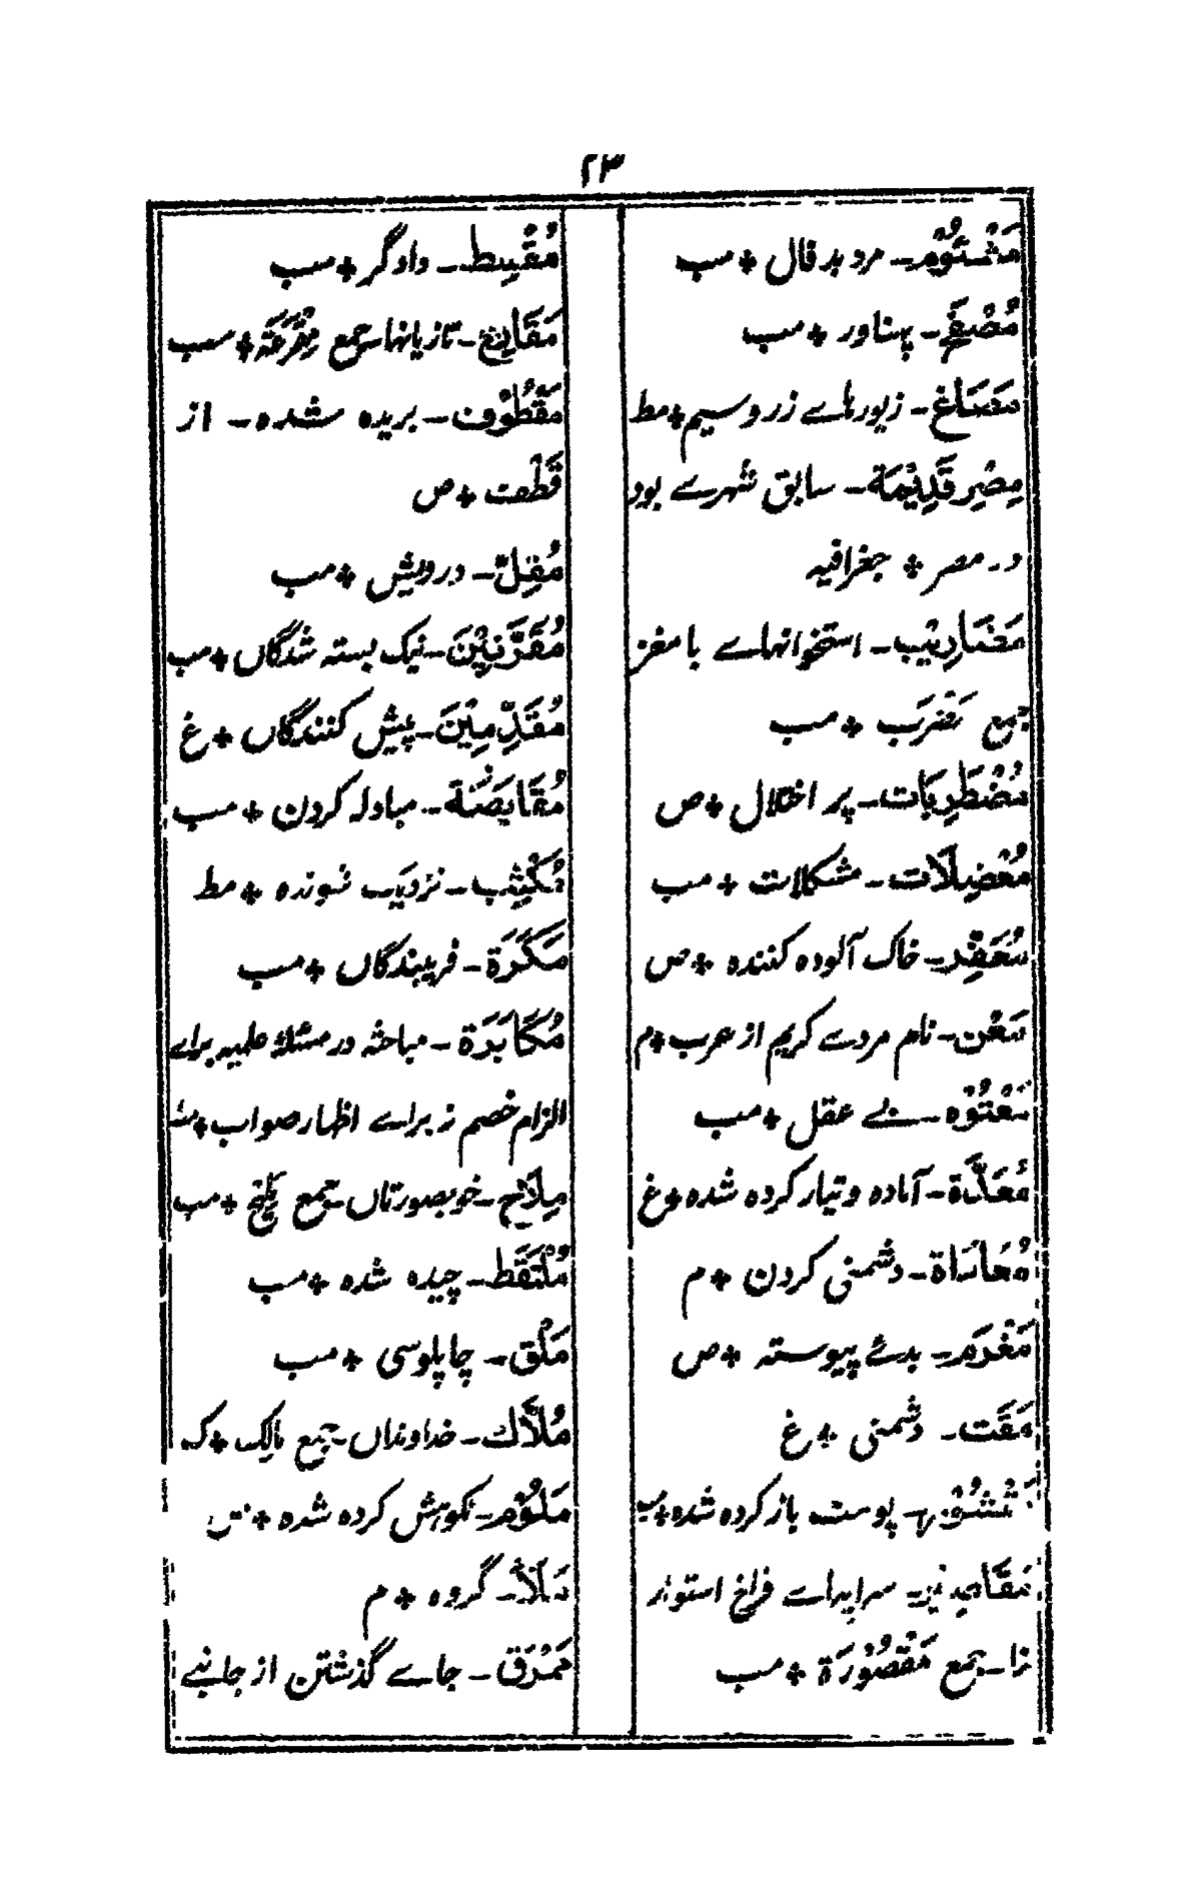 ۲۳
مَشْئُوْم ـ مرد بد فال ٭ مب
مُصْفَحْ ـ پهناور ٭ مب
مَصَاغ ـ زیورہاے زر و سیم ٭ مط
مِصْرِ قَدِيْمَة ـ سابق شهرے بود
در مصر ٭ جغرافیه
مَضَارِيْب ـ استخوانہاے با مغز
جمع مَضْرَب ٭ مب
مُضْطَرِبَات ـ پر اختلال ٭ ص
مُعْضِلَات ـ مشکلات ٭ مب
مُعَفِّر ـ خاک آلوده کننده ٭ ص
مَعْن ـ نام مردے کریم از عرب ٭ م
مَعْتُوْه ـ بے عقل ٭ مب
مُعَدَّة ـ آماده و تیار کرده شده ٭ غ
مُعَادَاة ـ دشمنی کردن ٭ م
مَغْرَم ـ بدئے پیوسته ٭ ص
مَقَت ـ دشمنی ٭ غ
پوست باز کرده شده ٭ مب
ـ سرایہاے فراخ استوار
نا ـ جمع مَقْصُوْرَة ٭ مب
مُقْسِط ـ دادگر ٭ مب
مَقَارِعْ ـ تازیانہا جمع مِقْرَعَة ٭ مب
مَقْطُوْف ـ بریده شده ـ از
قَطْعت ٭ ص
مُقِلّ ـ درویش ٭ مب
مُقَرَّنِيْنَ ـ نیک بسته شدگاں ٭ مب
مُقَدِّمِيْنَ ـ پیش کنندگاں ٭ غ
مُقَايَضَة ـ مبادلہ کردن ٭ مب
مُكْثِب ـ نزدیک شونده ٭ مط
مَكَرَة ـ فریبندگاں ٭ مب
مُكَابَرَة ـ مباحثہ در مسئلۂ علمیہ براے
الزام خصم نہ براے اظہار صواب ٭
مِلَاح ـ خوبصورتاں ـ جمع مَلِيْح ٭ مب
مُلْتَقَط ـ چیده شده ٭ مب
مَلْق ـ چاپلوسی ٭ مب
مُلَّاك ـ خداونداں ـ جمع مالِک ٭ ک
مَلُوْم ـ نکوہش کرده شده ٭ ص
مَلَأ ـ گروه ٭ م
مَمْرَق ـ جاے گذشتن از جانبے